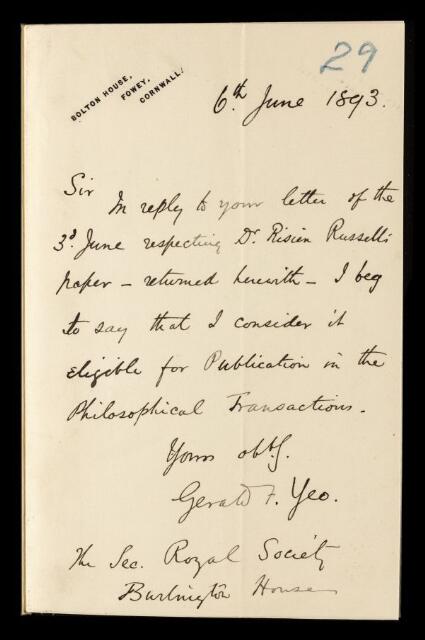 BOLTON HOUSE,
FOWEY,
CORNWALL.
29
6th June 1893.
Sir
In reply to your letter of the
3d. June respecting Dr. Risien Russell's
paper – returned herewith – I beg
to say that I consider it
eligible for Publication in the
Philosophical Transactions.
Yours obtly.
Gerald F. Yeo.
The Sec. Royal Society
Burlington House